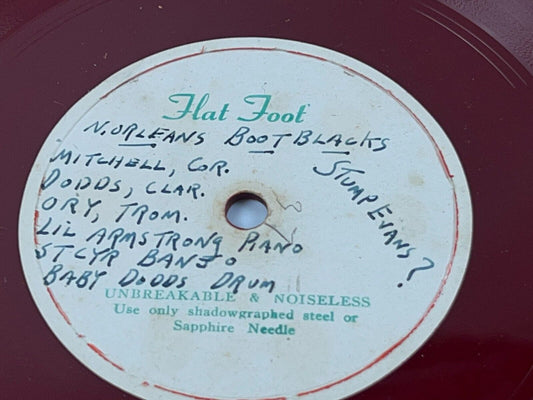 Flat Foot
N.ORLEANS BOOTBLACKS
STUMP EVANS?
MITCHELL, COR.
DODDS, CLAR.
ORY, TROM.
LIL ARMSTRONG PIANO
ST CYR BANJO
BABY DODDS DRUM
UNBREAKABLE & NOISELESS
Use only shadowgraphed steel or
Sapphire Needle